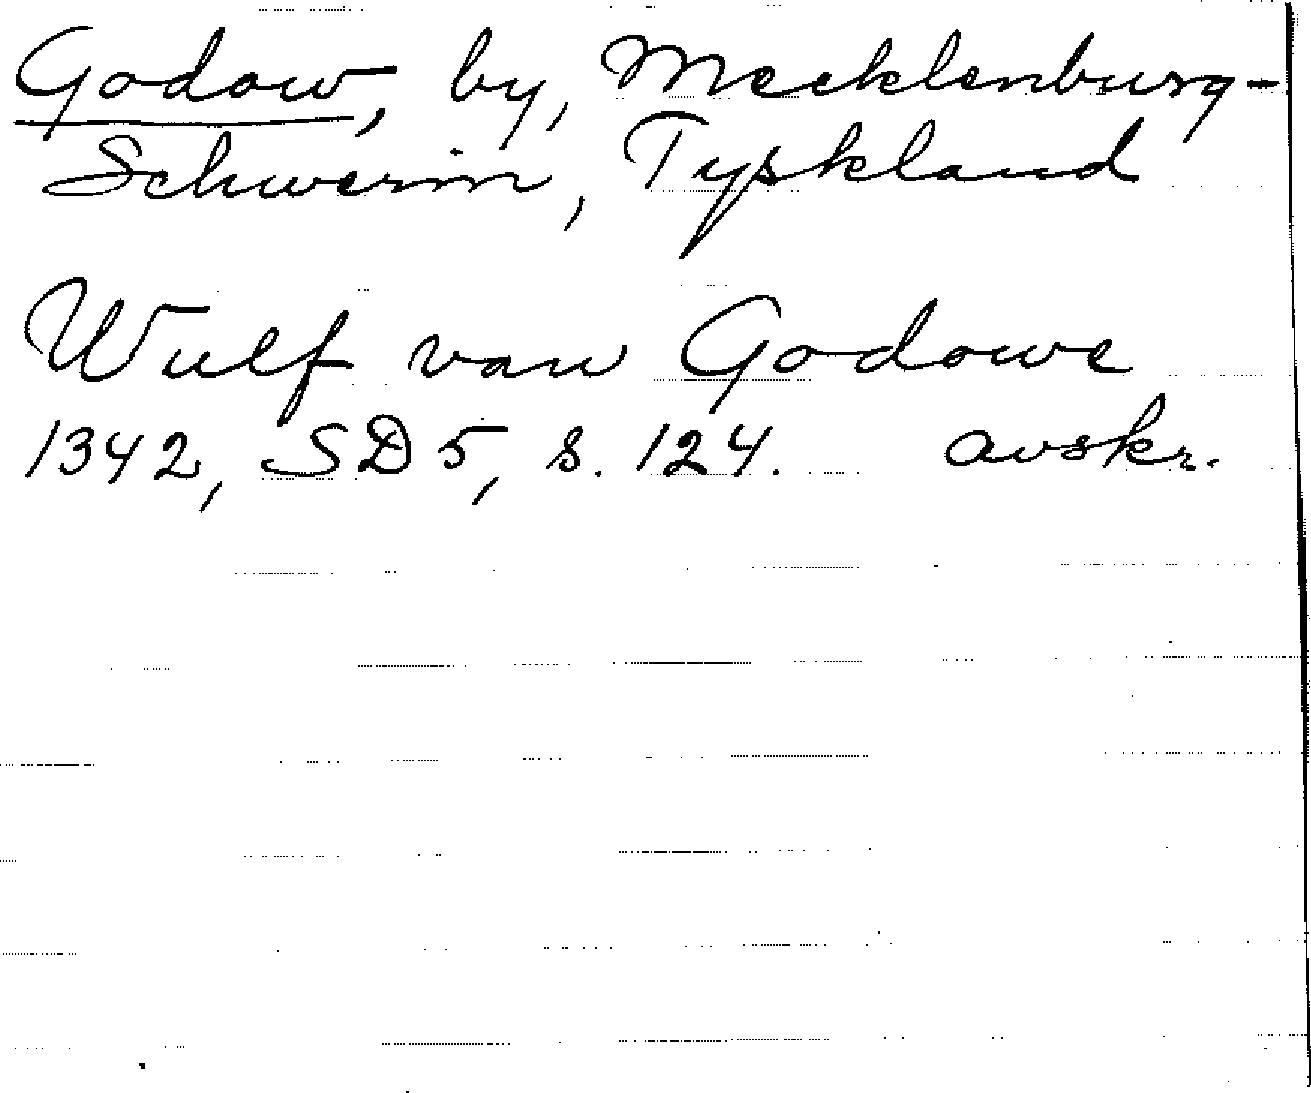 Godow, by, Mecklenburg-
Schwerin, Tyskland
Wulf van Godowe
1342, SD 5, s. 124. avskr.